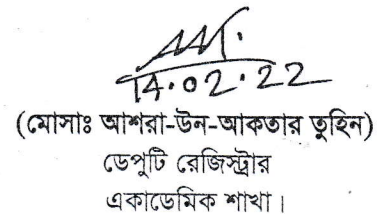 14.02.22
(মোসাঃ আশরা-উন-আকতার তুহিন)
ডেপুটি রেজিস্ট্রার
একাডেমিক শাখা।